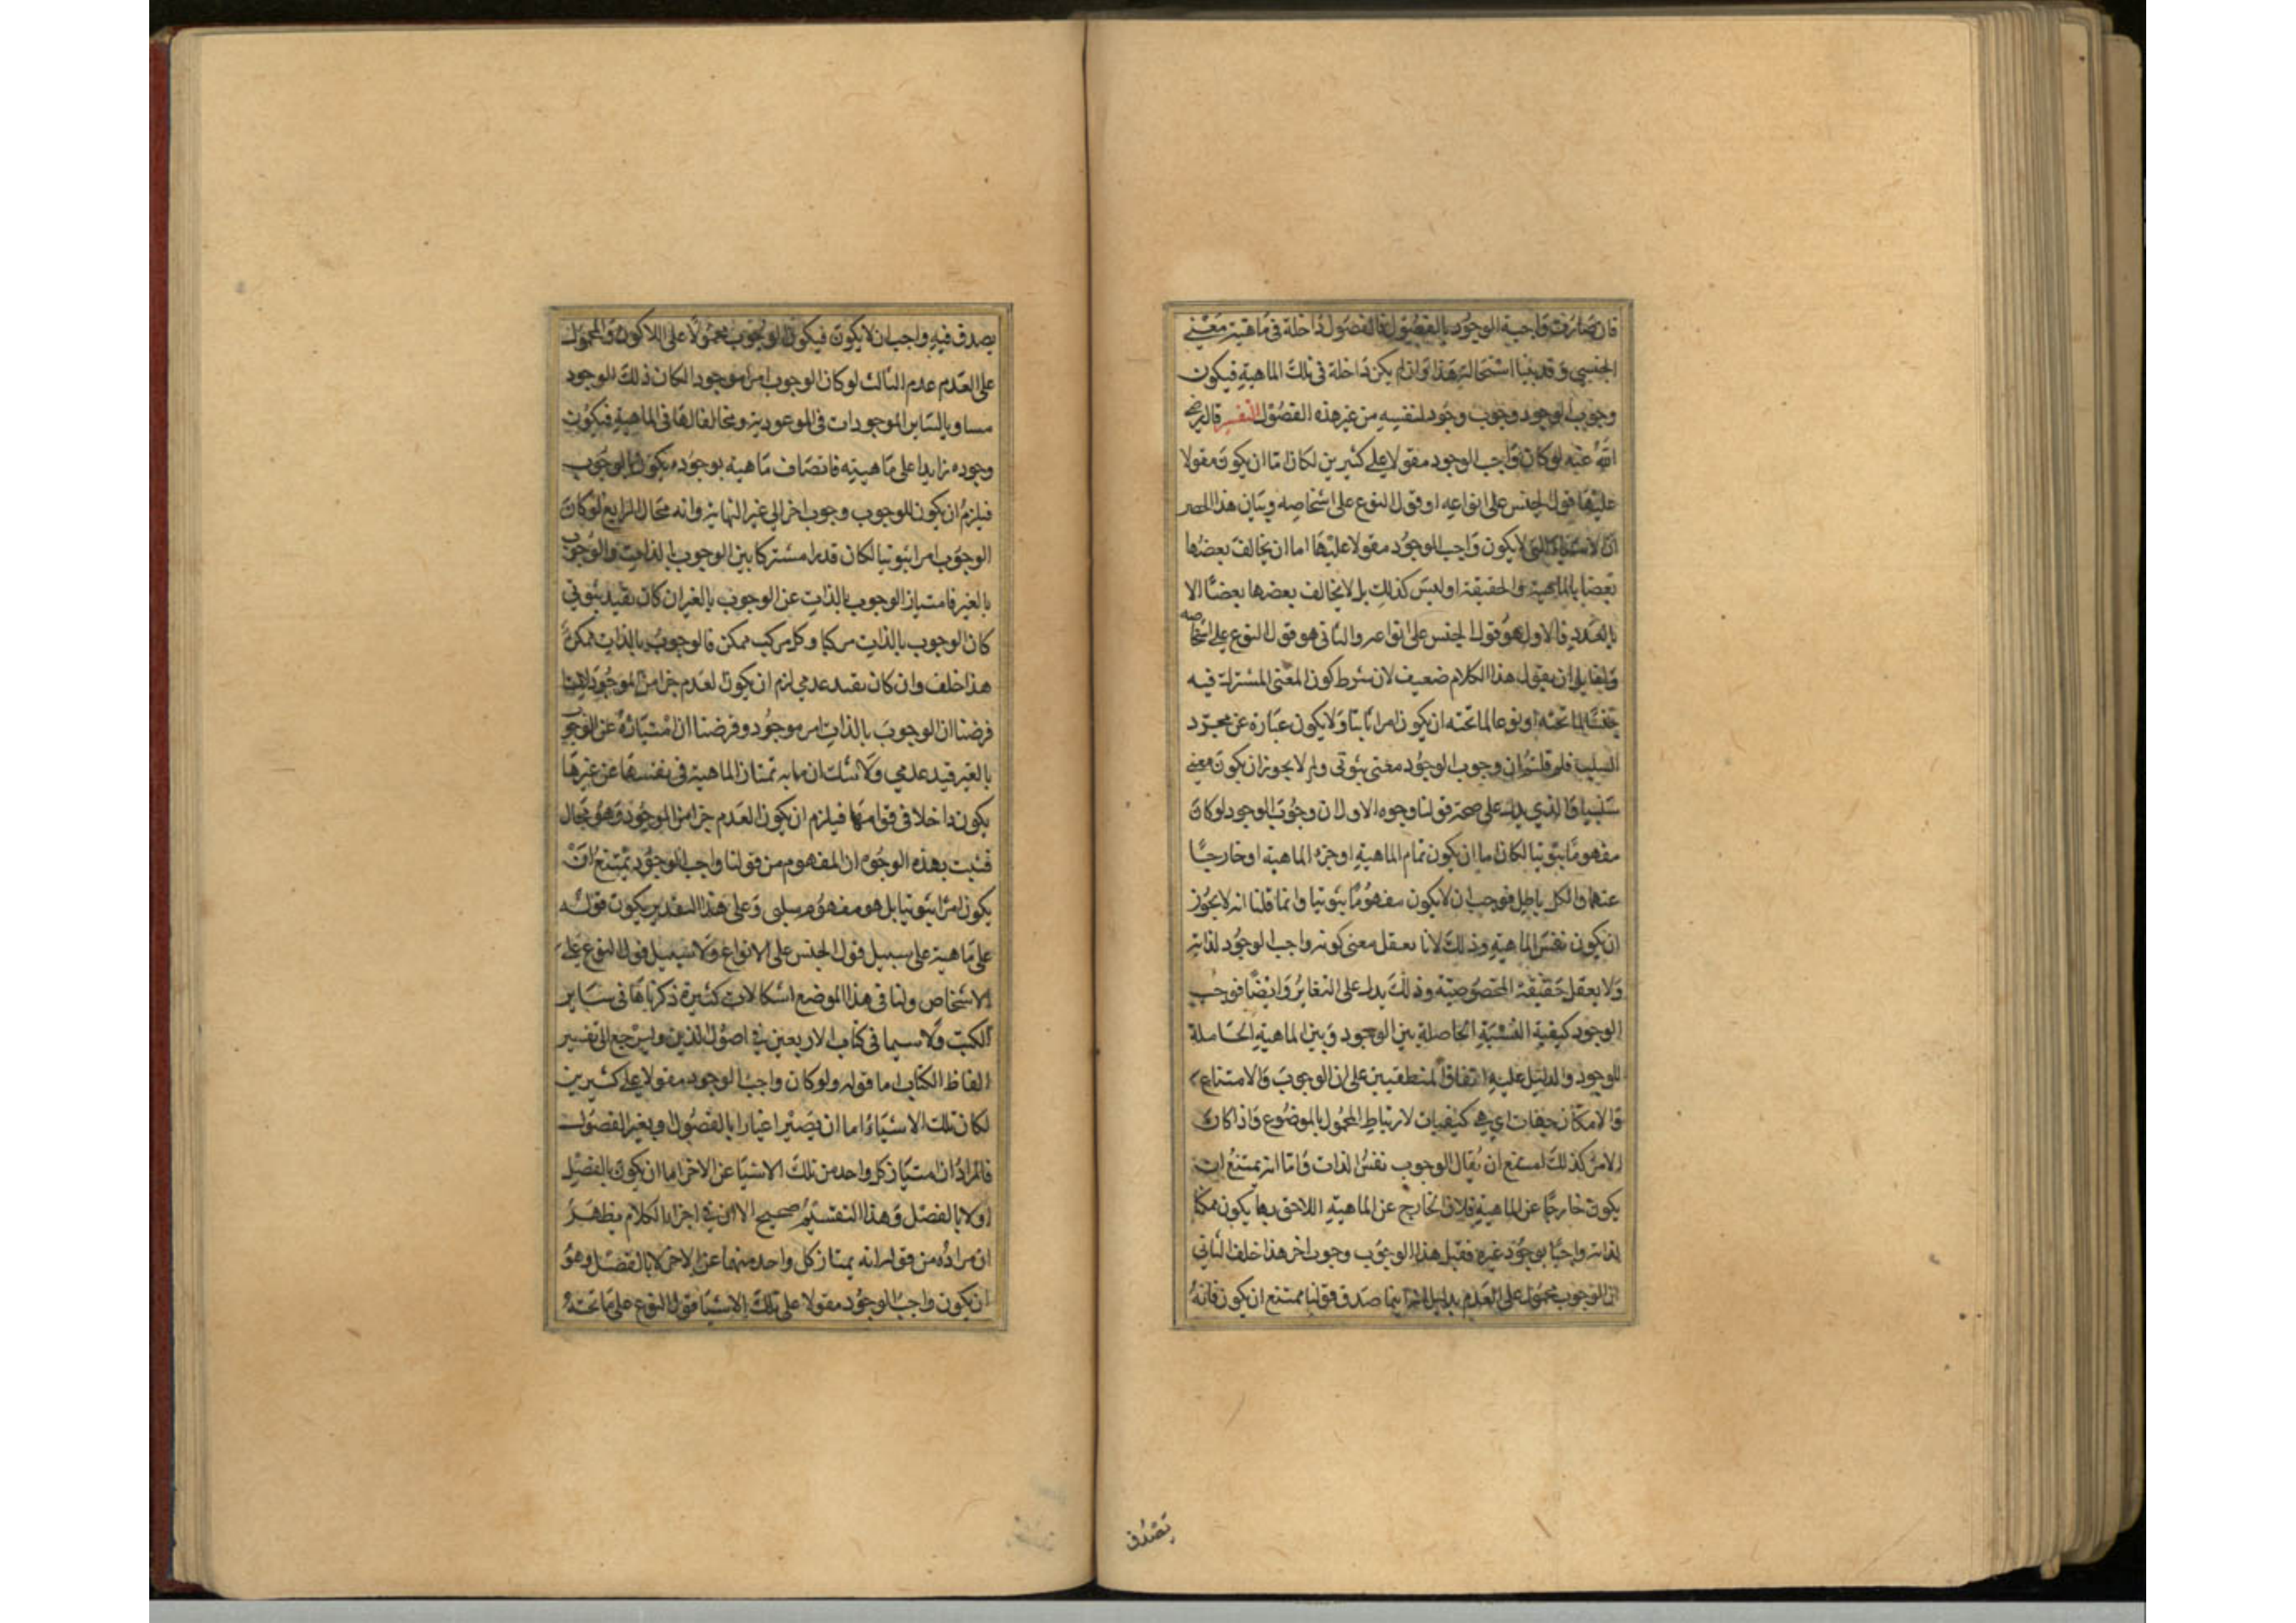 فان صارت واجبة الوجود بالفصول فالفصول داخلة في ماهية معني
الجنسي وقد بينا استحالة هذا وان لم يكن داخلة في تلك الماهية فيكون
وجوب الوجود وجوب وجود لنفسه من غير هذه الفصول التفسير قال رضي
الله عنه لو كان واجب الوجود مقولا علي كثيرين لكان اما ان يكون مقولا
عليها قول الجنس على انواعه او قول النوع على اشخاصه وبيان هذا الحصر
ان الاشياء التي يكون واجب الوجود مقولا عليها اما ان يخالف بعضها
بعضا بالماهية والحقيقة او ليس كذلك بل لا يخالف بعضها بعضا الا
بالعدد فالاول هو قول الجنس على انواعه والثاني هو قول النوع علي اشخاصه
ولقايل ان يقول هذا الكلام ضعيف لان شرط كون المعنى المشترك فيه
جنسا لما تحته او نوعا لما تحته ان يكون امرا ثابتا ولا يكون عبارة عن مجرد
السلب فلم قلتم ان وجوب الوجود معنى ثبوتي ولم لا يجوز ان يكون معنى
سلبيا والذي يدل على صحة قولنا وجوه الاول ان وجوب الوجود لو كان
مفهوما ثبوتيا لكان اما ان يكون تمام الماهية او جزء الماهية او خارجا
عنها والكل باطل فوجب ان لا يكون مفهوما ثبوتيا وانما قلنا انه لا يجوز
ان يكون نفس الماهية وذلك لانا نعقل معنى كونه واجب الوجود لذاته
ولا نعقل حقيقة المخصوصية وذلك يدل على التغاير وايضا فوجب
الوجود كيفية النسبة الحاصلة بين الوجود وبين الماهية الحاصلة
للوجود والدليل عليه اتفاق المنطقيين على ان الوجوب والامتناع
والامكان جهات اي هي كيفيات لارتباط المحمول بالموضوع واذا كان
الامر كذلك امتنع ان يقال الوجوب نفس الذات واما انه يمتنع ان
يكون خارجا عن الماهية فلان الخارج عن الماهية اللاحق بها يكون ممكنا
لذاته واجبا بوجود غيره فقبل هذا الوجوب وجوب اخر هذا خلف الثاني
ان الوجوب محمول على العدم بدليل انه انما صدق قولنا ممتنع ان يكون فانه
تصدق
يصدق فيه واجب ان لا يكون فيكون الوجوب محمولا على اللاكون والمحمول
على العدم عدم الثالث لو كان الوجوب امرا موجودا لكان ذلك الوجود
مساويا لساير الموجودات في الموجودية ومخالفا لها في الماهية فيكون
وجوده زايدا على ماهيته فاتصاف ماهيته بوجوده يكون بالوجوب
فيلزم ان يكون للوجوب وجوب اخر الي غير النهاية وانه محال الرابع لو كان
الوجوب امرا ثبوتيا لكان قدرا مشتركا بين الوجوب بالذات والوجوب
بالغير فامتياز الوجوب بالذات عن الوجوب بالغير ان كان بقيد ثبوتي
كان الوجوب بالذات مركبا وكل مركب ممكن فالوجوب بالذات ممكن
هذا خلف وان كان بقيد عدمي لزم ان يكون العدم جزا من الموجود لانا
فرضنا ان الوجوب بالذات امر موجود وفرضنا ان امتيازه عن الوجوب
بالغير قيد عدمي ولا شك ان ما به تمتاز الماهية في نفسها عن غيرها
يكون داخلا في قوامها فيلزم ان يكون العدم جزا من الموجود وهو محال
فثبت بهذه الوجوه ان المفهوم من قولنا واجب الوجود يمتنع ان
يكون امرا ثبوتيا بل هو مفهوم سلبي وعلى هذا التقدير يكون قوله
على ماهية على سبيل قول الجنس على الانواع ولا سبيل قول النوع على
الاشخاص ولنا في هذا الموضع اشكالات كثيرة ذكرناها في ساير
الكتب ولا سيما في كتاب الاربعين في اصول الدين ولنرجع الى تفسير
الفاظ الكتاب اما قوله ولو كان واجب الوجود مقولا على كثيرين
لكان تلك الاشياء اما ان يصير اغيارا بالفصول او بغير الفصول
فالمراد ان امتياز كل واحد من تلك الاشيا عن الاخر اما ان يكون بالفصل
او لا بالفصل وهذا التقسيم صحيح الا ان في اجزاء الكلام يظهر
ان مراده من قوله انه يمتاز كل واحد منهما عن الاخر لا بالفصل وهو
ان يكون واجب الوجود مقولا على تلك الاشيا قول النوع على ما تحته